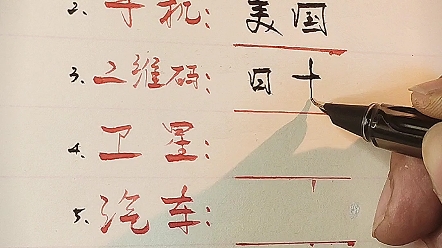 2.手机：美国
3.二维码：日十
4.卫星：
5.汽车：